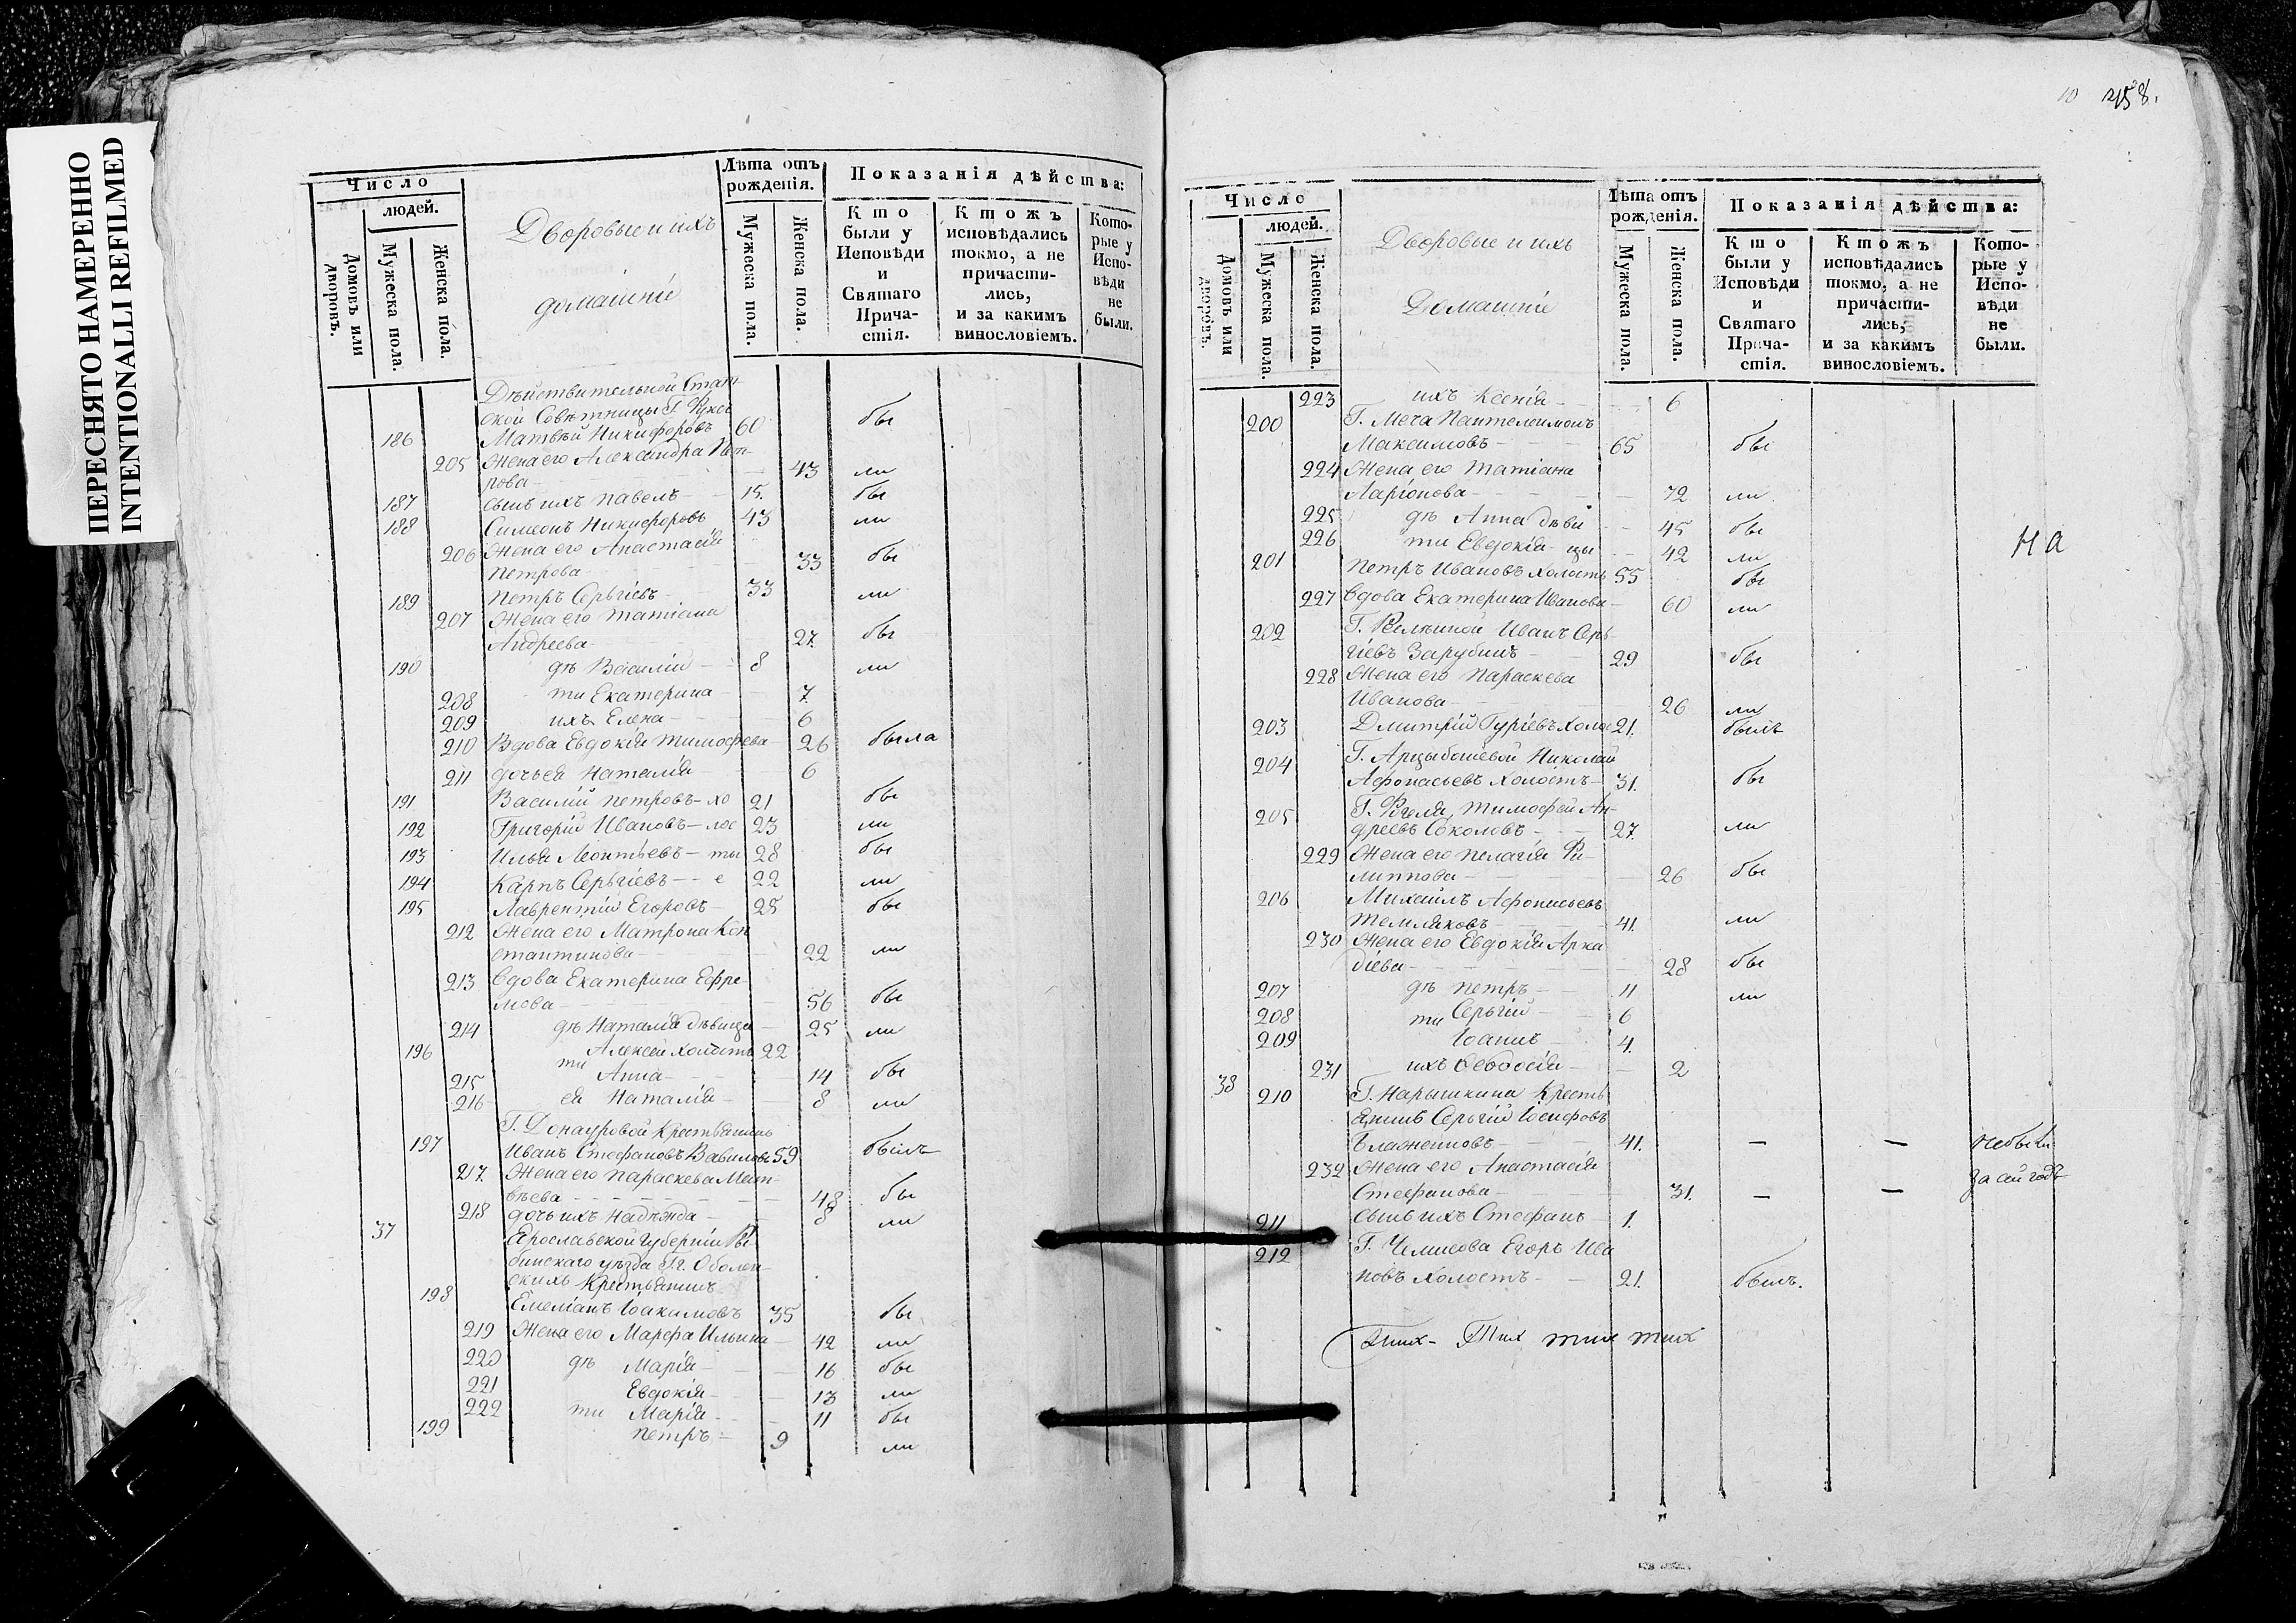 ПЕРЕСНЯТО НАМЕРЕННО
INTENTIONALLI REFILMED
Число
людей.
Домовъ или дворовъ.
Мужеска пола.
Женска пола.
Дворовые и ихъ
домашніе
Лѣта отъ рожденія.
Мужеска пола.
Женска пола.
Показанія дѣйства:
Кто были у Исповѣди и Святаго Причастія.
Ктожъ исповѣдались токмо, а не причастились, и за какимъ винословіемъ.
Которые у Исповѣди не были.
Дѣйствительной Стат-
ской Совѣтницы Г.
186 Матвѣй Никифоровъ 60 бы
205 Жена его Александра Пет-
рова 43 ли
187 сынъ ихъ Павелъ 15. бы
188 Симеонъ Никифоровъ 43 ли
206 Жена его Анастасія
Петрова 33 бы
189 Петръ Сергіевъ 33 ли
207 Жена его Татіана
Андреева 27. бы
190 дѣ Василій 8 ли
208 ти Екатерина 7.
209 ихъ Елена 6
210 Вдова Евдокія Тимофеева 26 была
211 дочь ея Наталія 6
191 Василій Петровъ - хо 21 бы
192 Григорій Ивановъ - лос 23 ли
193 Илья Леонтьевъ - ты 28 бы
194 Карпъ Сергіевъ - - е 22 ли
195 Лаврентій Егоровъ 25 бы
212 Жена его Матрона Кон
стантинова 22 ли
213 Вдова Екатерина Ефре-
мова 56 бы
214 дѣ Наталія дѣвица 25 ли
196 Алексей холостъ 22
ти
215 Анна 14 бы
216 ея Наталія 8 ли
Г. Донауровой Крестьянинъ
197 Иванъ Стефановъ Вавиловъ 59 былъ
217. Жена его Параскева Мат-
вѣева 48 бы
218 дочь ихъ Надежда 8 ли
37 Ярославской Губерніи Ры-
бинскаго уѣзда Гг. Оболен-
скихъ Крестьянинъ
198 Емеліанъ Іоакимовъ 35 бы
219 Жена его Марфа Ильина 42 ли
220 дѣ Марія 16 бы
221 Евдокія 13 ли
222 ти Марія 11 бы
199 Петръ 9 ли
10 258.
Число
людей.
Домовъ или дворовъ.
Мужеска пола.
Женска пола.
Дворовые и ихъ
Домашніе
Лѣта отъ рожденія.
Мужеска пола.
Женска пола.
Показанія дѣйства:
Кто были у Исповѣди и Святаго Причастія.
Ктожъ исповѣдались токмо, а не причастились, и за какимъ винословіемъ.
Которые у Исповѣди не были.
223 ихъ Ксенія 6
200 Г. Меча Пантелеимонъ
Максимовъ 65 бы
224 Жена его Татіана
Ларіонова 72 ли
225 дѣ Анна дѣви 45 бы
226 ти Евдокія - цы 42 ли
На
201 Петръ Ивановъ холостъ 55 бы
227 Вдова Екатерина Иванова 60 ли
202 Г. Иванъ Сер-
гіевъ Зарубинъ 29 бы
228 Жена его Параскева
Иванова 26 ли
203 Дмитрій Гуріевъ холос 21. былъ
204 Г. Арцыбашевой Николай
Афонасьевъ холостъ 31. бы
205 Г. Тимофей Ан-
дреевъ Соколовъ 27. ли
229 Жена его Пелагія Фи-
липпова 26 бы
206 Михаилъ Афонасьевъ
Темляковъ 41. ли
230 Жена его Евдокія Арка
діева 28 бы
207 дѣ Петръ 11 ли
208 ти Сергій 6
209 Іоаннъ 4.
231 ихъ Ѳеодосія 2
38 210 Г. Нарышкина Кресть
янинъ Сергій Іосифовъ
41. — — небыли
232 Жена его Анастасія за сій годъ
Стефанова 31. — —
211 сынъ ихъ Стефанъ 1.
212 Г. Челисова Егоръ Ива
новъ холостъ 21. былъ.